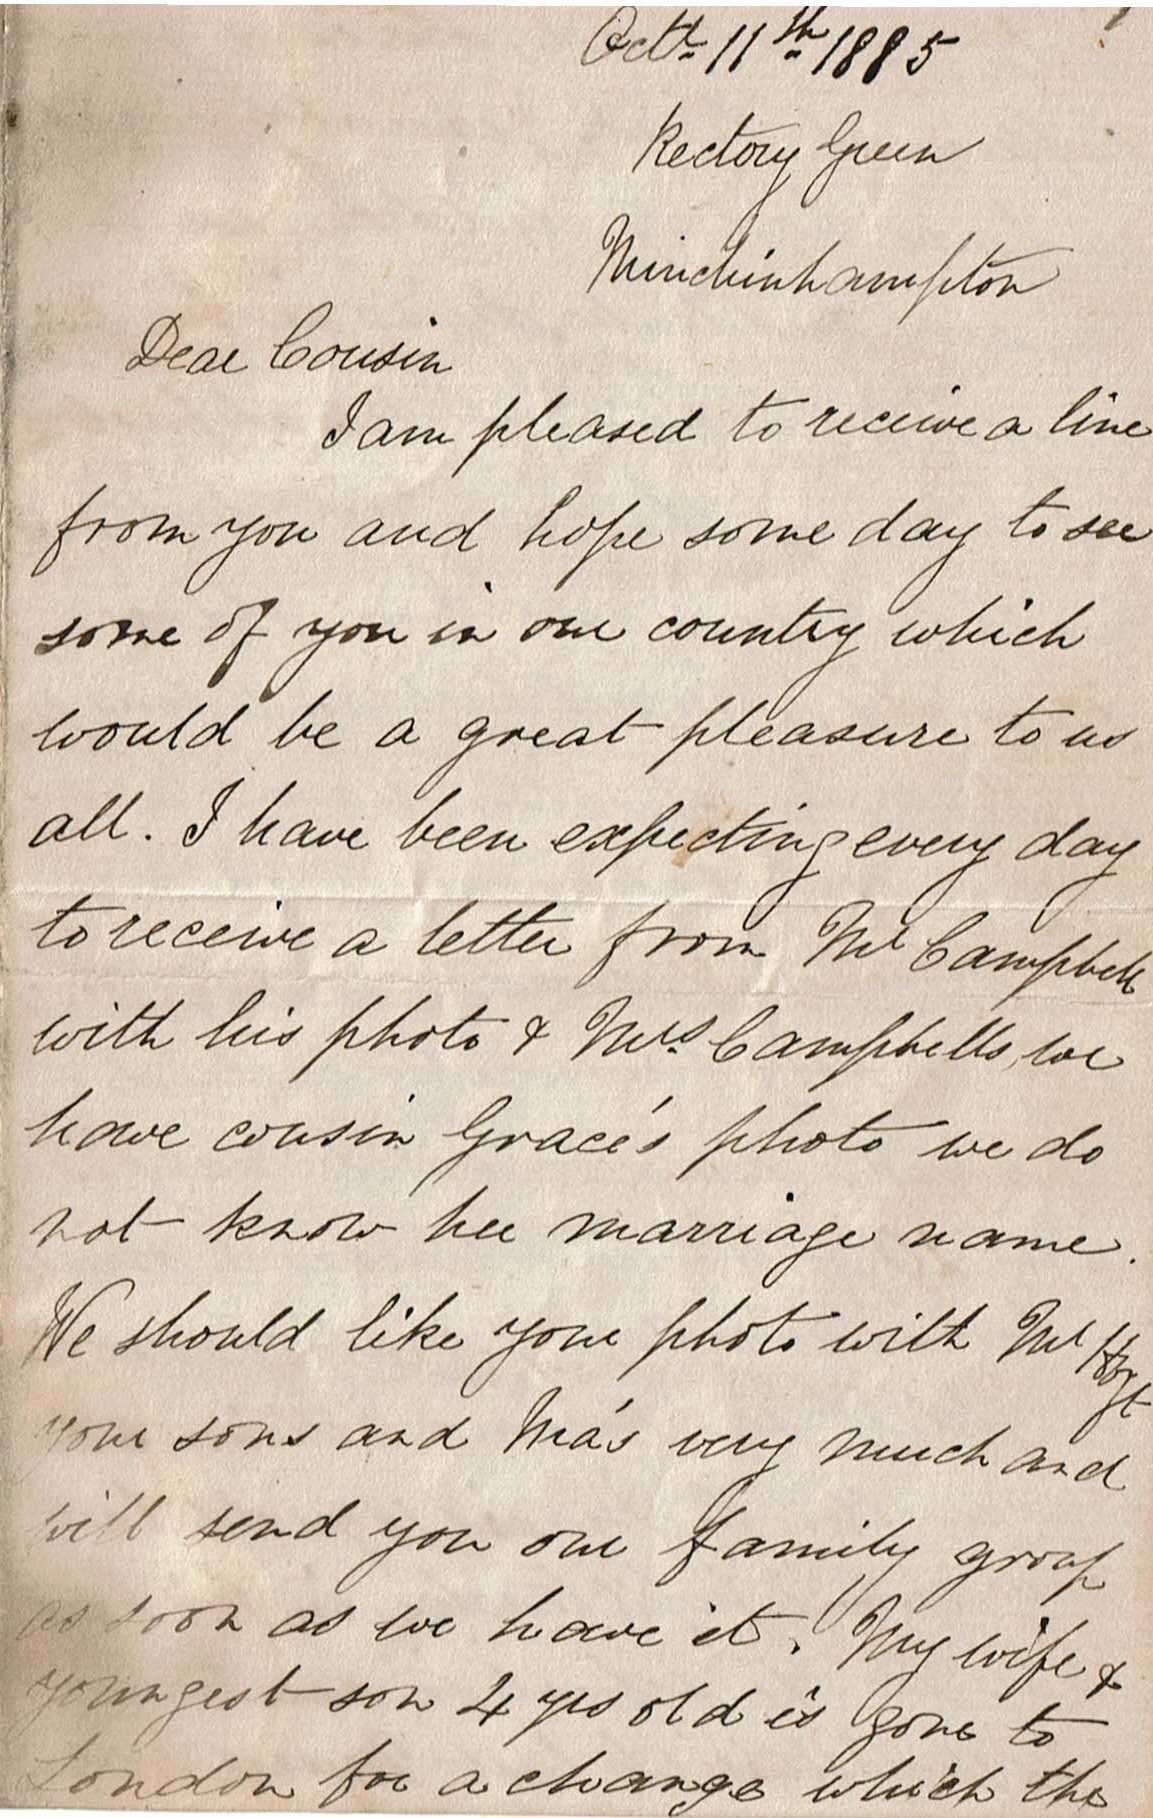 Octr 11th 1885
Rectory Green
Minchinhampton
Dear Cousin
I am pleased to receive a line
from you and hope some day to see
some of you in our country which
would be a great pleasure to us
all. I have been expecting every day
to receive a letter from Mr Campbell
with his photo & Mrs Campbells, we
have cousin Grace's photo we do
not know her marriage name.
We should like your photo with Mr Hoyt
your sons and Ma's very much and
will send you our family group
as soon as we have it. My wife &
youngest son 4 yrs old is gone to
London for a change which the